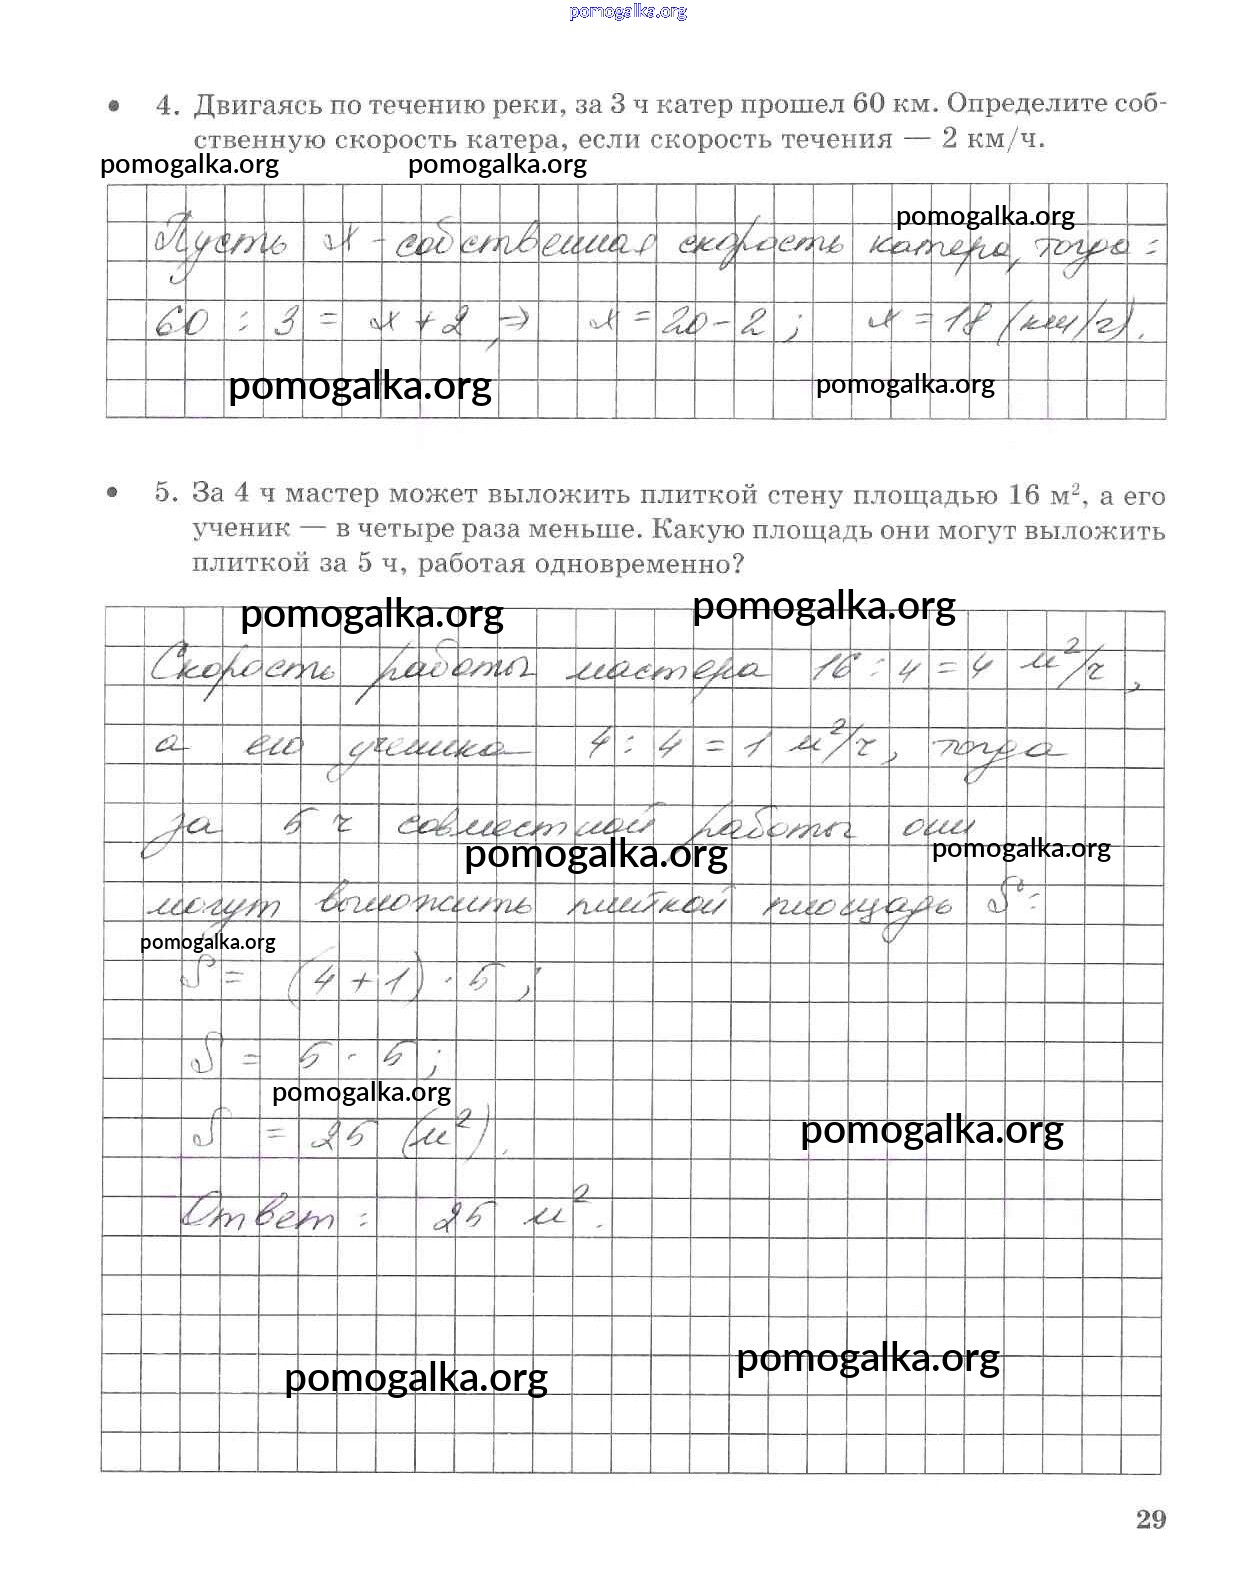 pomogalka.org
• 4. Двигаясь по течению реки, за 3 ч катер прошел 60 км. Определите соб-
ственную скорость катера, если скорость течения — 2 км/ч.
pomogalka.org pomogalka.org
pomogalka.org
Пусть x - собственная скорость катера, тогда:
60 : 3 = x + 2, ⇒ x = 20 - 2 ; x = 18 (км/ч).
pomogalka.org pomogalka.org
• 5. За 4 ч мастер может выложить плиткой стену площадью 16 м², а его
ученик — в четыре раза меньше. Какую площадь они могут выложить
плиткой за 5 ч, работая одновременно?
pomogalka.org pomogalka.org
Скорость работы мастера 16 : 4 = 4 м²/ч,
а его ученика 4 : 4 = 1 м²/ч, тогда
за 5 ч совместной работы они
pomogalka.org pomogalka.org
могут выложить плиткой площадь S:
pomogalka.org
S = (4 + 1) · 5 ;
S = 5 · 5 ;
pomogalka.org
S = 25 (м²).
pomogalka.org
Ответ: 25 м².
pomogalka.org pomogalka.org
29